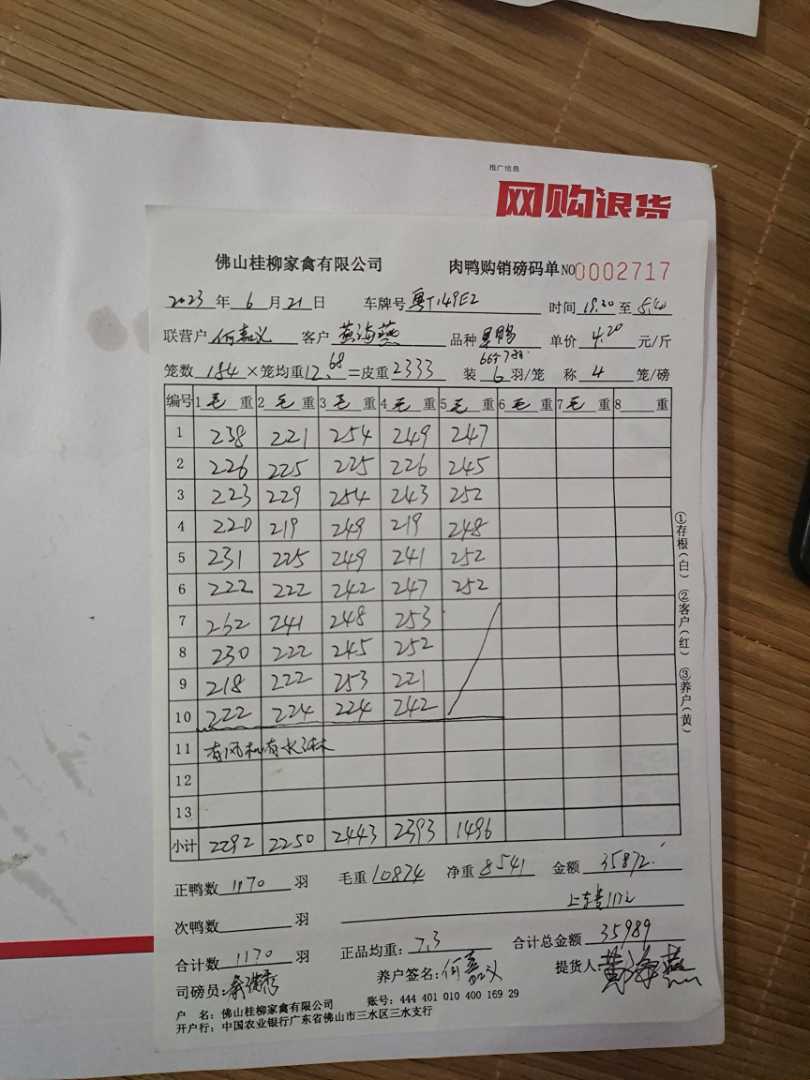 推广信息
网购退货
佛山桂柳家禽有限公司 肉鸭购销磅码单 NO 0002717
2023 年 6 月 21 日 车牌号 粤T149E2 时间 18:20 至 5:40
联营户 何嘉义 客户 黄海燕 品种 单价 4.20 元/斤
笼数 184 ×笼均重 12.68 =皮重 2333 装 6 羽/笼 称 4 笼/磅
编号 1 毛 重 2 毛 重 3 毛 重 4 毛 重 5 毛 重 6 毛 重 7 毛 重 8 重
1 238 221 254 249 247
2 226 225 225 226 245
3 223 229 254 243 252
4 220 219 249 219 248
5 231 225 249 241 252
6 222 222 242 247 252
7 262 241 248 253
8 230 222 245 252
9 218 222 253 221
10 222 224 224 242
11 有风和有水
12
13
小计 2292 2250 2443 2393 1496
正鸭数 1170 羽 毛重 10874 净重 8541 金额 35872
次鸭数 羽 上车费117元
合计数 1170 羽 正品均重: 7.3 合计总金额 35989
司磅员: 养户签名: 何嘉义 提货人: 黄海燕
户 名: 佛山桂柳家禽有限公司 账号: 444 401 010 400 169 29
开户行: 中国农业银行广东省佛山市三水区三水支行
①存根(白) ②客户(红) ③养户(黄)